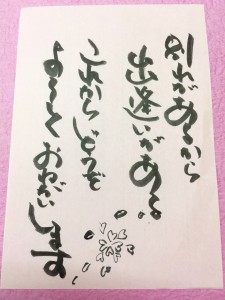 別れがあるから
出逢いがある
これからどうぞ
よろしくおねがい
します